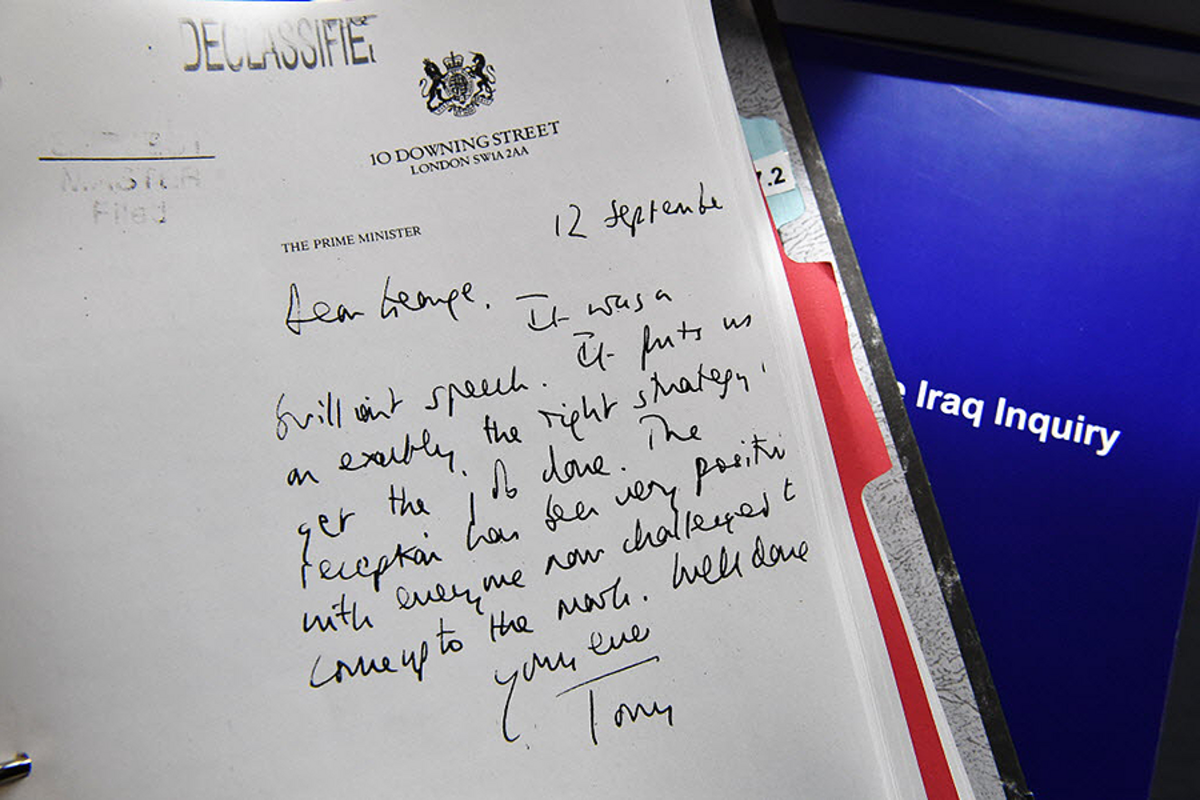 DECLASSIFIE
10 DOWNING STREET
LONDON SW1A 2AA
MASTER
Filed
7.2
THE PRIME MINISTER
12 September
Dear George. It was a
brilliant speech. It puts us
on exactly the right strategy to
get the job done. The
reception has been very positive
with everyone now challenged to
come up to the mark. Well done
Yours ever
Tony
e Iraq Inquiry